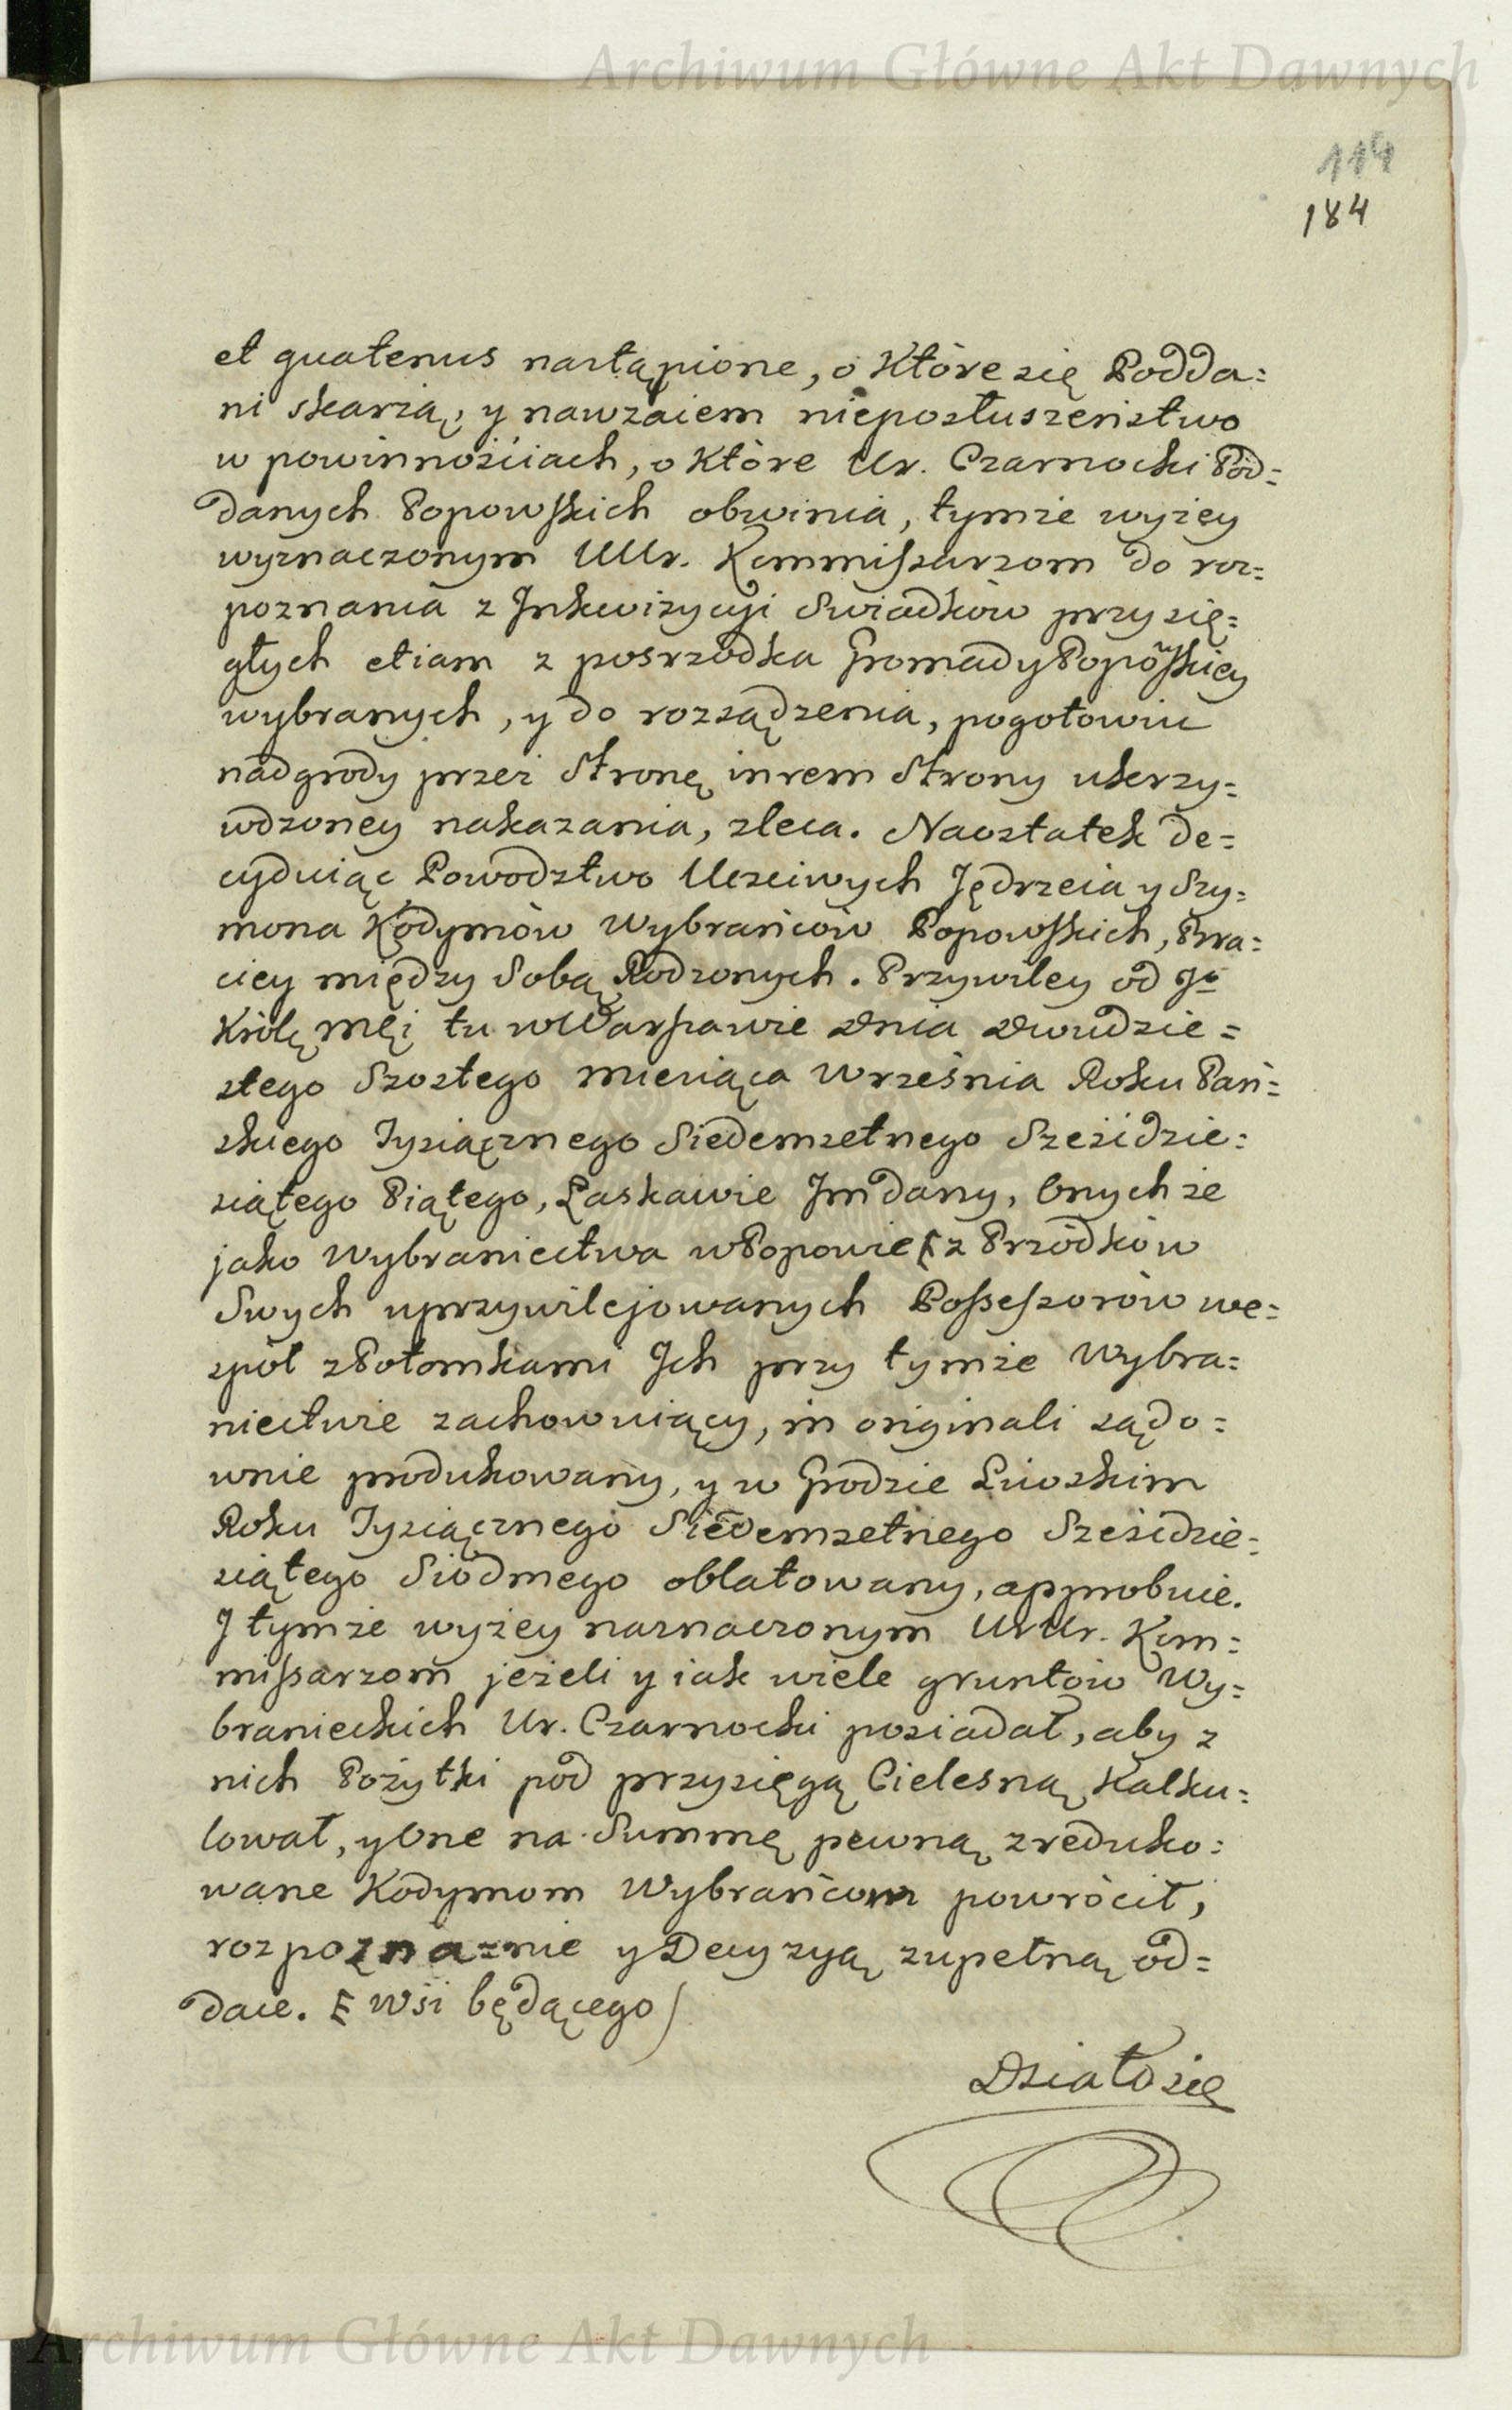 Archiwum Główne Akt Dawnych
114
184
et quatenus nastąpione, o które się Podda=
ni skarżą, y nawzaiem nieposłuszeństwo
w powinnościach, o które Ur. Czarnocki Pod=
danych Popowskich obwinia, tymże wyżey
wyznaczonym UUr. Kommissarzom do roz=
poznania z Inkwizycyi Swiadków przysię=
głych etiam z posrzodka Gromady Popowskiey
wybranych, y do rozsądzenia, pogotowiu
nadgrody przez Stronę in rem Strony ukrzy=
wdzoney nakazania, zleca. Naostatek de=
cyduiąc Powodztwo Uczciwych Jędrzeia y Szy=
mona Kodymów Wybrańców Popowskich, Bra=
ciey między Sobą Rodzonych. Przywiley od Jº
Królę Męi tu w Warszawie Dnia Dwudzie=
stego Szostego Miesiąca Września Roku Pań=
skiego Tysiącznego Siedemsetnego Sześćdzie=
siątego Piątego, Łaskawie Im dany, Onychże
jako Wybraniectwa w Popowie E z Przodków
Swych uprzywilejowanych Possessorów we=
spół z Potomkami Ich przy tymże Wybra=
niectwie zachowuiący, in originali sądo=
wnie produkowany, y w Grodzie Liwskim
Roku Tysiącznego Siedemsetnego Sześćdzie=
siątego Siodmego oblatowany, approbuie.
I tymże wyżey naznaczonym UrUr. Kom=
missarzom jeżeli y iak wiele gruntów Wy=
branieckich Ur. Czarnocki posiadał, aby z
nich Pożytki pod przysięgą Cielesną Kalku=
lował, y One na Summę pewną zreduko=
wane Kodymom Wybrańcom powrócił,
rozpoznanie y Decyzyą zupełną od=
daie. E wsi będącego)
Działo się
Archiwum Główne Akt Dawnych